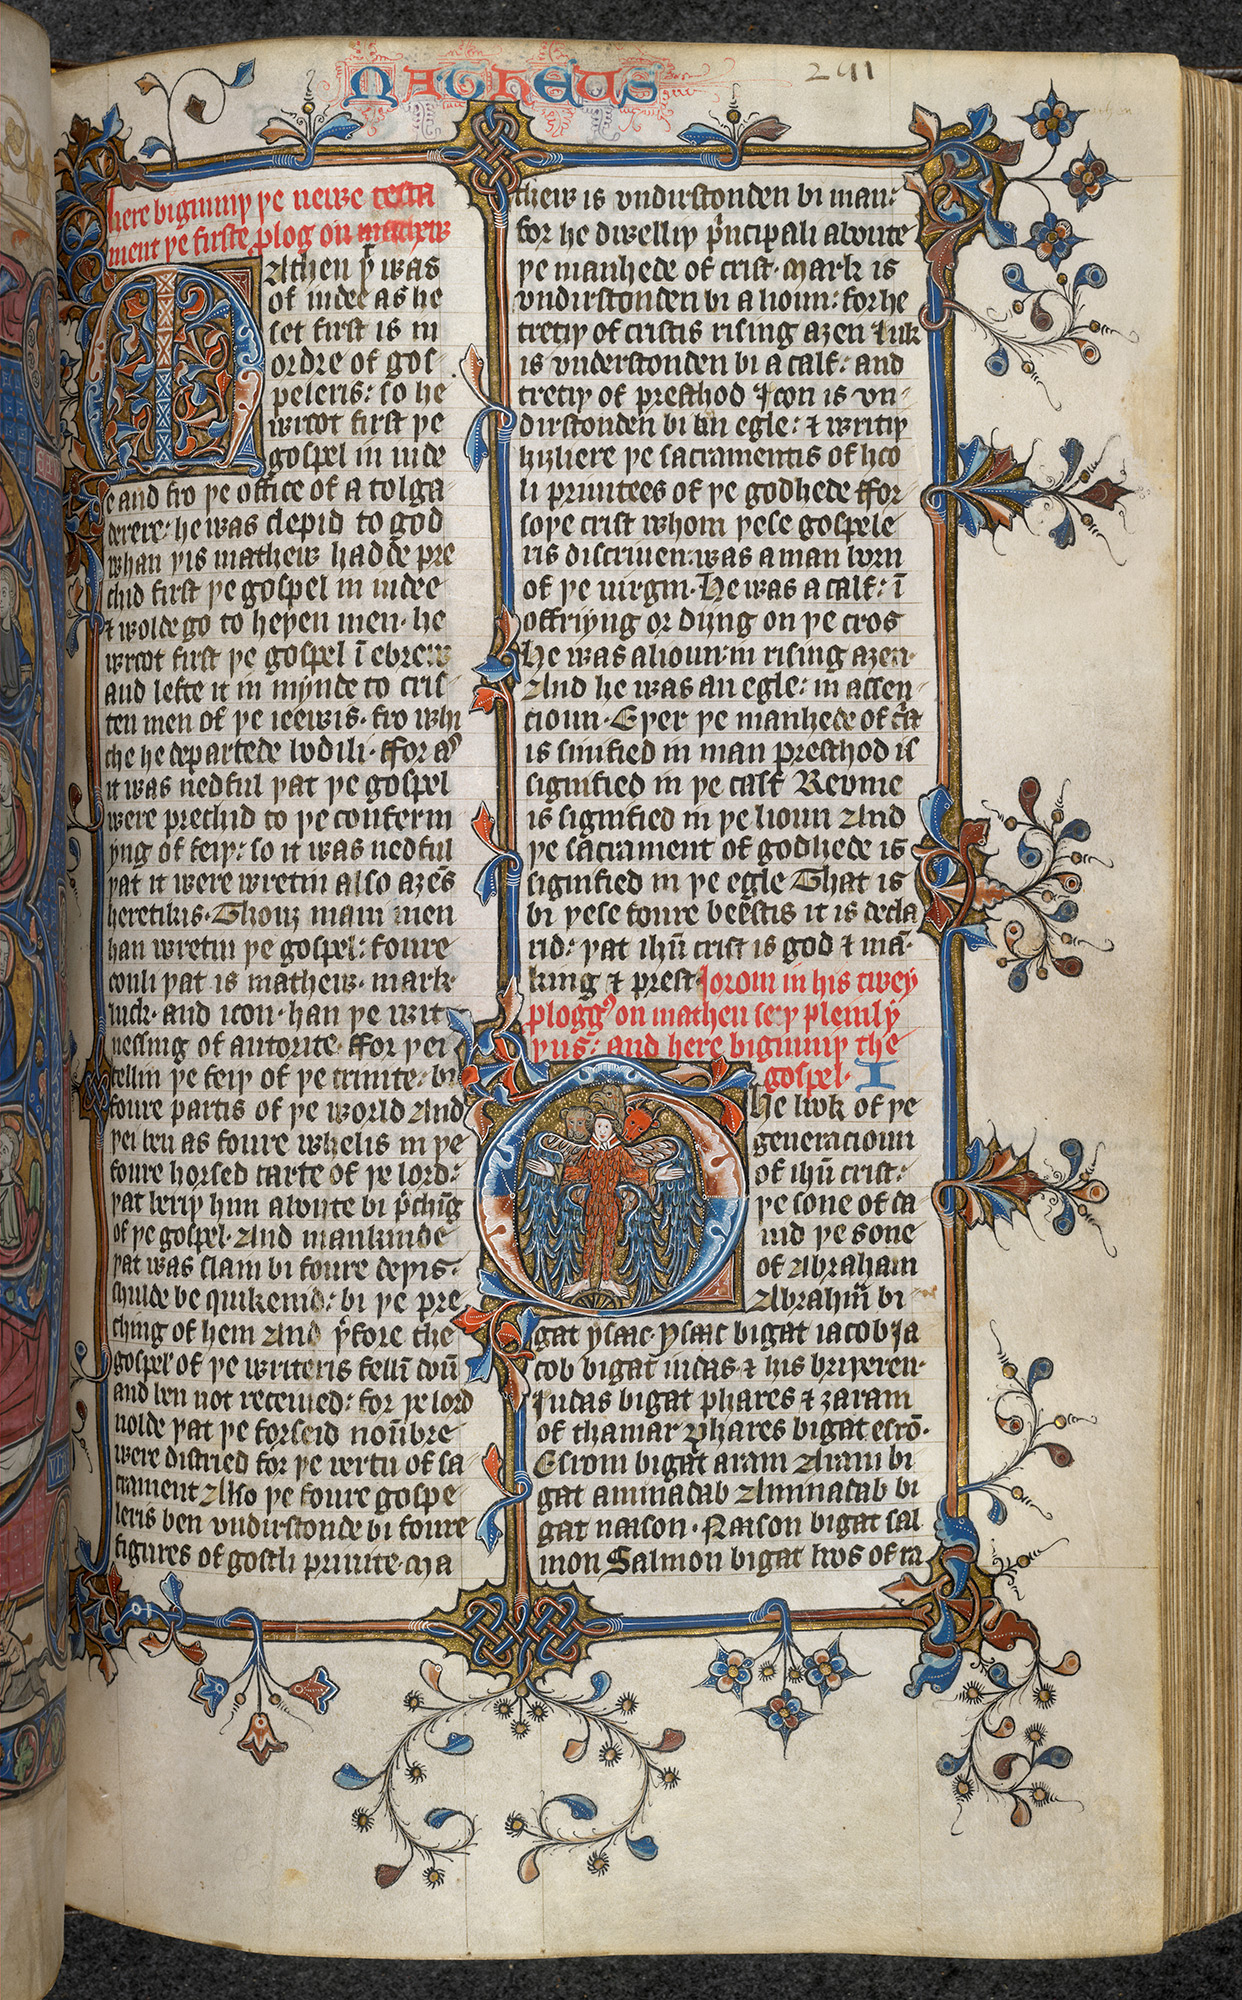 MATHEUS
241
here biginniþ þe newe testa
ment þe firste plog on mathew
Matheu þt was
of iudee as he
set first is in
ordre of gos-
peleris: so he
wroot first þe
gospel in iude
e and fro þe office of a tolga
derere: he was clepid to god
whan þis mathew hadde pre
chid first þe gospel in iudee
⁊ wolde go to heþen men· he
wroot first þe gospel ī ebrew
and lefte it in mynde to cris-
ten men of þe ieewis· fro whi
che he departede bodili· ffor as
it was nedful þat þe gospel
were prechid to þe conferm
yng of feiþ: so it was nedful
þat it were wretin also aȝēs
heretikis· Thouȝ mani men
han wretin þe gospel: foure
oonli þat is mathew· mark·
luck· and ioon· han þe wit-
nessing of autorite· ffor þei
tellin þe feiþ of þe trinite· bi
foure partis of þe world And
þei ben as foure whelis in þe
foure horsed carte of þe lord:
þat beriþ him aboute bi p̄chīg
of þe gospel· And mankinde
þat was slain bi foure deþis·
schulde be quikenid: bi þe pre-
ching of hem And þ̄fore the
gospels of þe writeris fellī doū
and ben not receiued: for þe lord
nolde þat þe forseid noūbre
were distried for þe vertu of sa
crament Also þe foure gospe-
leris ben vndirstonde bi foure
figures of gostli priuite· Ma
thew is vndirstonden bi man:
for he dwelliþ p̄ncipali aboute
þe manhede of crist· Mark is
vndirstonden bi a lioun: for he
tretiþ of cristis rising aȝen ⁊ luk
is vnderstonden bi a calf: and
tretiþ of presthod Ioon is vn-
dirstonden bi an egle: ⁊ writiþ
hiȝliere þe sacramentis of hoo
li priuitees of þe godhede ffor
soþe crist whom þese gospele
ris discriuen: was a man born
of þe uirgin· He was a calf: ī
offriyng or diyng on þe cros
He was a lioun: in rising aȝen·
And he was an egle: in assen-
cioun· Eþer þe manhede of cr̄st
is sinified in man presthod is
signified in þe calf Rewme
is signified in þe lioun And
þe sacrament of godhede is
signified in þe egle That is
bi þese foure beestis it is decla
rid: þat ihū crist is god ⁊ mā·
king ⁊ prest· Ierom in his twey
plogg᾽ on matheu seiþ pleinly
þus: and here biginniþ the
gospel· I
The book of þe
generacioun
of ihū crist:
þe sone of da
uid þe sone
of Abraham
Abrahā bi
gat ysaac· Ysaac bigat iacob Ia
cob bigat iudas ⁊ his briþeren·
Iudas bigat phares ⁊ zaram
of thamar Phares bigat esrō·
Esrom bigat aram Aram bi
gat aminadab Aminadab bi
gat naason· Naason bigat sal
mon Salmon bigat boos of ra